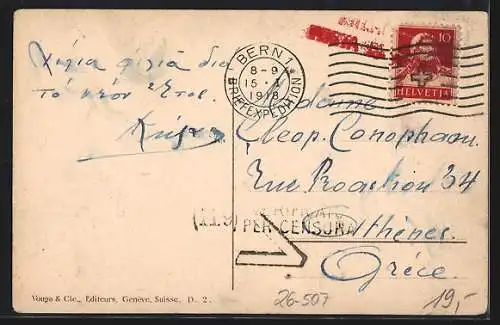 χίλια φιλιά δια
το νέον Έτος.
BERN 1
8-9
15. I
1918
BRIEFEXPEDITION
10
HELVETIA
Madame
Cleop. Conopham.
Rue Proaction 34
Athènes.
Grèce.
(119)
VERIFICATO
PER CENSURA
Vouga & Cie., Editeurs, Genève, Suisse. D. 2.
26-507
19,-